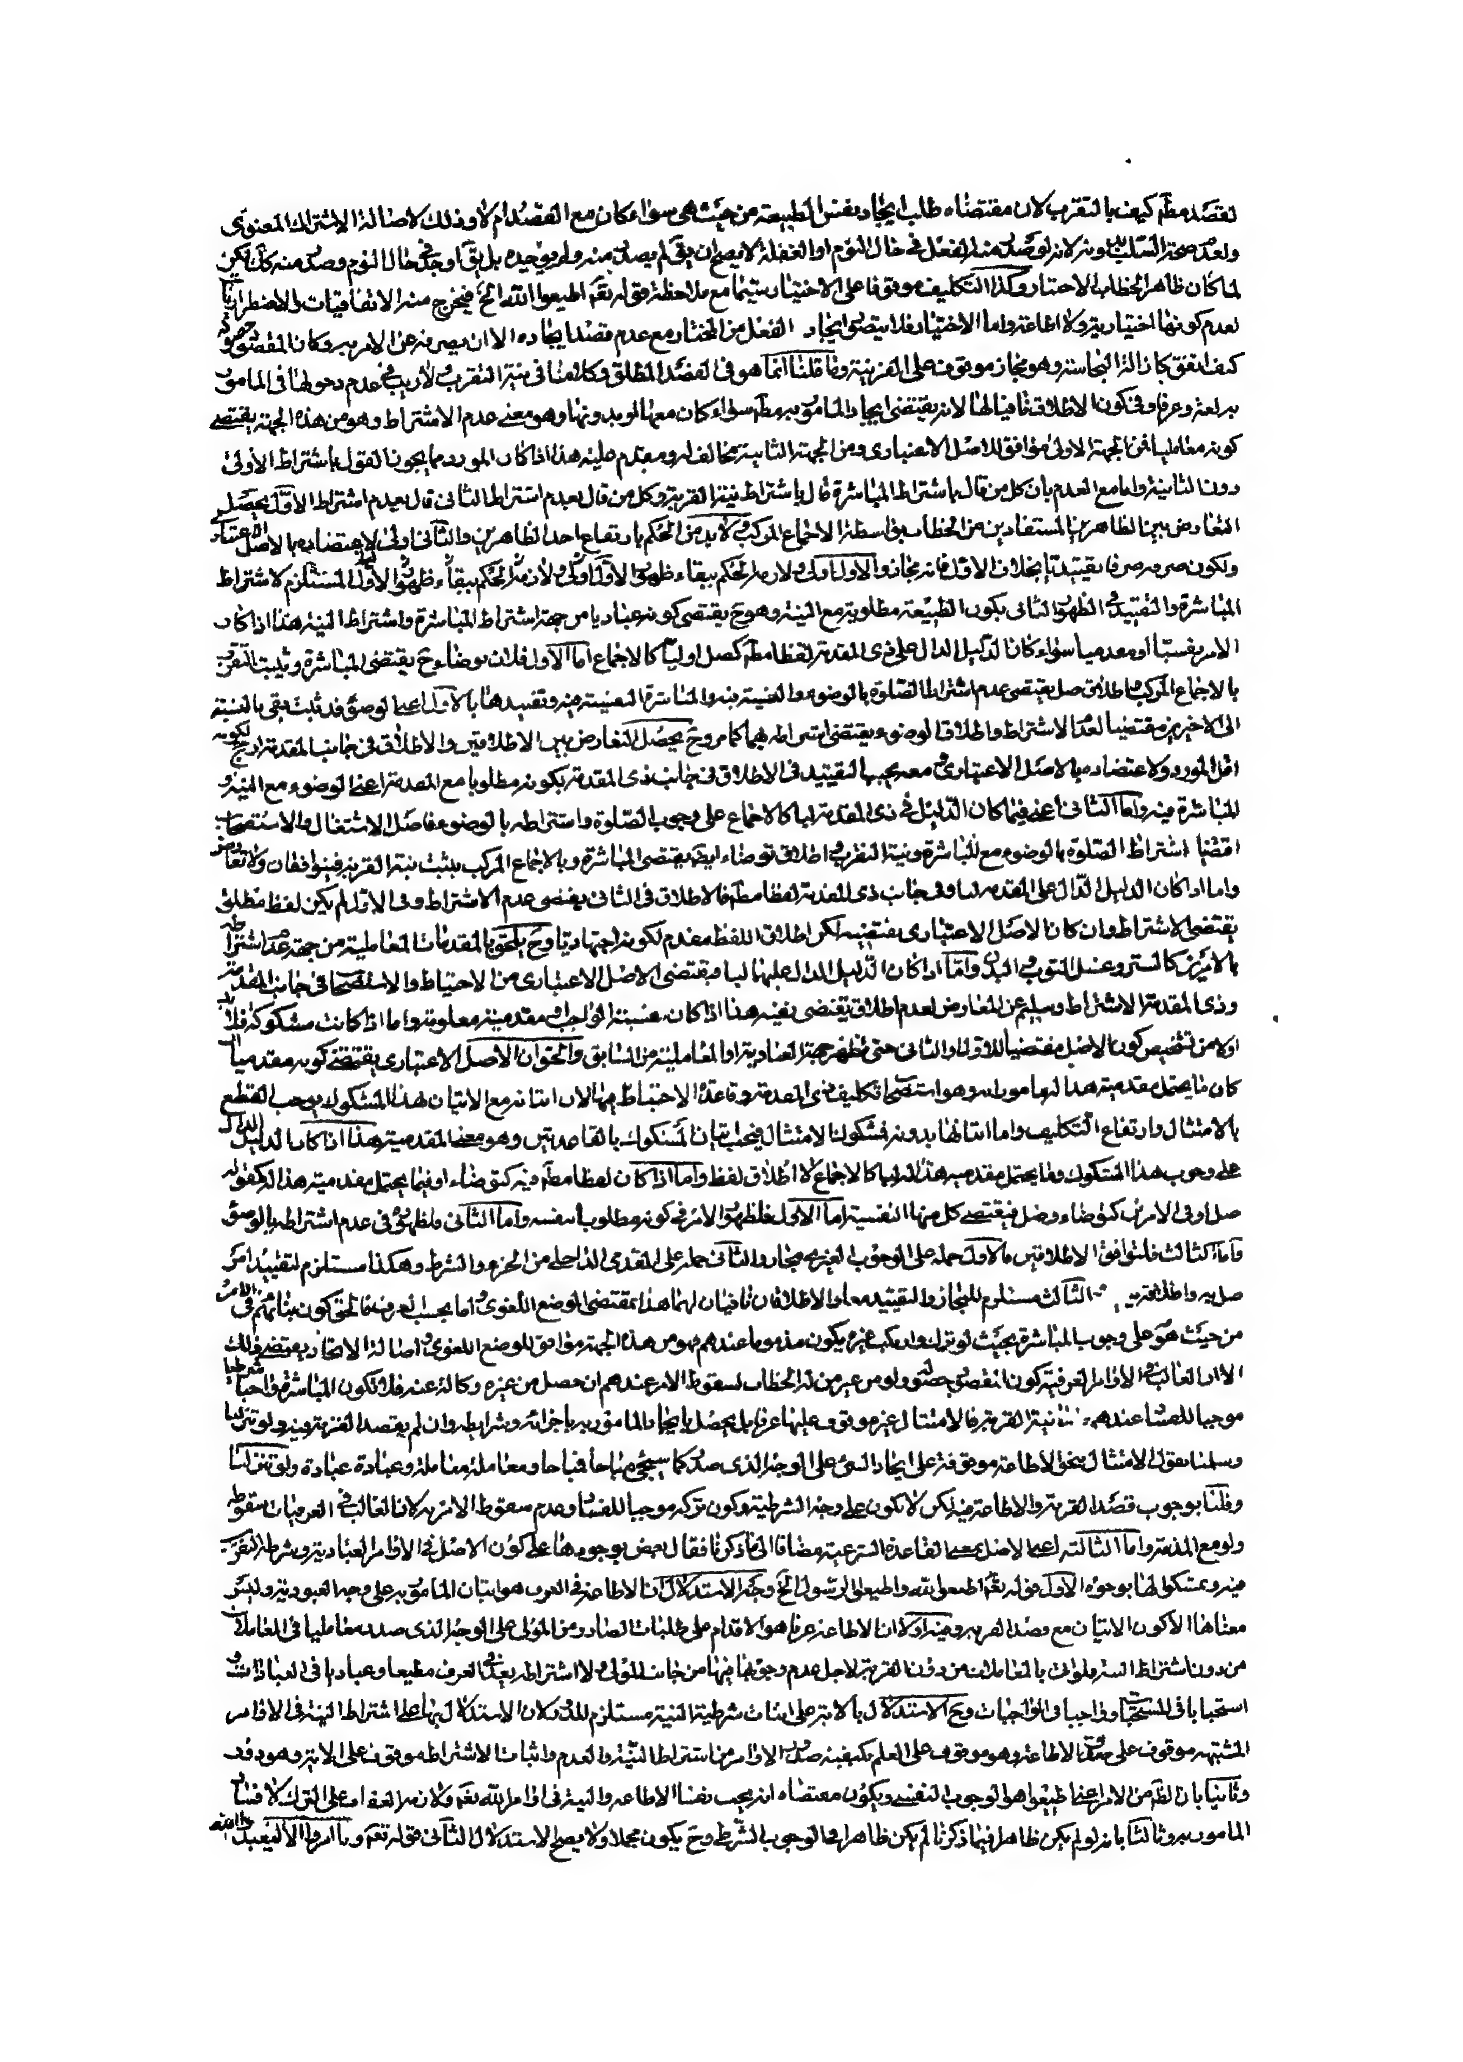 لقصد مطم كيف بالتقرب لان مقتضاه طلب ايجاد نفس الطبيعة من حيث هى سواء كان مع القصد ام لا وذلك لاصالة الاشتراك المعنوى
ولعدم صحة السلب بدونه لانه لو صدر منه الفعل فى حال النوم او الغفلة لا يصح ان يق لم يصدر منه ولم يوجده بل يق اوجد فى حال النوم وصدر منه كك لكن
لما كان ظاهر الخطاب الاختيار وكذا التكليف موقوفا على الاختيار سيما مع ملاحظة قوله تعم اطيعوا الله الخ فيخرج منه الاتفاقيات والاضطراريات
لعدم كونها اختيارية ولا اطاعة واما الاختيار فلا يقتضى ايجاد الفعل من المختار مع عدم قصد ايجاده الا ان يصرفه عن الامر به وكان المقصود حصوله
كيف اتفق كازالة النجاسة وهو مجاز موقوف على القرينة وما قلنا انما هو فى القصد المطلق وكلامنا فى نية التقرب ولا ريب فى عدم دخولها فى المامور
به لغة وعرفا فيكون الاطلاق نافيا لها لانه يقتضى ايجاد المامور به مطم سواء كان معها او بدونها وهو معنى عدم الاشتراط وهو من هذه الجهة يقتضى
كونه معامليا فمن الجهة الاولى موافق للاصل الاعتبارى ومن الجهة الثانية مخالف له ومقدم عليه هذا اذا كان المورد مما يجوز القول باشتراط الاولى
دون الثانية واما مع العدم بان كل من قال باشتراط المباشرة قال باشتراط نية القربة وكل من قال بعدم اشتراط الثانى قال بعدم اشتراط الاول يحصل
التعارض بين الظاهرين المستفادين من الخطاب بواسطة الاجماع المركب ولا بد من الحكم بارتفاع احد الظاهرين والثانى اولى لاعتضاده بالاصل الاعتبارى
ولكون صرفه صرفا تقييديا بخلاف الاول فانه مجاز والاول اولى ولازم الحكم ببقاء ظهور الاول المستلزم لاشتراط
المباشرة والتقييد فى الظهور الثانى بكون الطبيعة مطلوبة مع النية وهو ح يقتضى كونه عباديا من جهة اشتراط المباشرة واشتراط النية هذا اذا كان
الامر نفسيا او مقدميا سواء كان الدليل الدال على ذى المقدمة لفظا مطم كصل او لبيا كالاجماع اما الاول فلان توضاء ح يقتضى المباشرة ويثبت التقرب
بالاجماع المركب واطلاق صل يقتضى عدم اشتراط الصلوة بالوضوء
الى الاخيرين مقتضيا لعدم الاشتراط واطلاق الوضوء يقتضى اشتراطه بهما كما مر وح يحصل التعارض بين الاطلاقين والاطلاق فى جانب المقدمة ارجح لكونه
اقل المورد ولاعتضاده بالاصل الاعتبارى ومعه يجب التقييد فى الاطلاق فى جانب ذى المقدمة بكونه مطلوبا مع المقدمة اعنى الوضوء مع النية و
المباشرة فيه واما الثانى اعنى فيما كان الدليل فى ذى المقدمة لبيا كالاجماع على وجوب الصلوة واشتراطه بالوضوء فاصل الاشتغال والاستصحاب
اقتضيا اشتراط الصلوة بالوضوء مع المباشرة ونية التقرب واطلاق توضاء ايضا يقتضى المباشرة وبالاجماع المركب يثبت نية القربة فيتوافقان ولا تعارض
واما اذا كان الدليل الدال على المقدمة لبيا وفى جانب ذى المقدمة لفظا مطم فالاطلاق فى الثانى يقتضى عدم الاشتراط وفى الاول لم يكن لفظ مطلق
يقتضى الاشتراط وان كان الاصل الاعتبارى يقتضيه لكن اطلاق اللفظ مقدم لكونه اجتهاديا وح يلحق بالمقدمات المعاملية من جهة عدم اشتراطه
بالامرين كالستر وغسل الثوب والبدن واما اذا كان الدليل الدال عليهما لبيا فمقتضى الاصل الاعتبارى من الاحتياط والاستصحاب فى جانب المقدمة
وذى المقدمة الاشتراط وسليم عن المعارض لعدم اطلاق يقتضى نفيه هذا اذا كان نفسية الواجب او مقدميته معلومة واما اذا كانت مشكوكة فلا بد
اولا من تشخيص كون الاصل مقتضيا للاول او الثانى حتى يظهر جهة العبادية او المعاملية من السابق والحق ان الاصل الاعتبارى يقتضى كونه مقدميا ان
كان ما يحتمل مقدميته هذا لها مامورا به وهو استصحاب تكليف ذى المقدمة وقاعدة الاحتياط فيها لان اتيانه مع الاتيان لهذا المشكوك يوجب القطع
بالامتثال وارتفاع التكليف واما اتيانها بدونه فمشكوك الامتثال فيجب اتيان المشكوك بالقاعدتين وهو معنى المقدمية هذا اذا كان الدليل الدال
على وجوب هذا المشكوك وما يحتمل مقدميته هذا له لبيا كالاجماع لا اطلاق لفظ واما اذا كان لفظا مطم فيه كتوضاء او فيما يحتمل مقدمية هذا له كقوله
صل او فى الامرين كتوضاء وصل فيقتضى كل منها النفسية اما الاول فلظهور الامر فى كونه مطلوبا لنفسه واما الثانى فلظهوره فى عدم اشتراطه بالوضوء
واما الثالث فلتوافق الاطلاقين
من حيث هو على وجوب المباشرة بحيث لو ترك وارتكب غيره يكون مذموما عندهم فهو من هذه الجهة موافق للوضع اللغوى واصالة الاتحاد يقتضى ذلك
الا ان الغالب فى الاوامر العرفية كون المقصود حصوله ولو من غير من له الخطاب لسقوط الامر عندهم ان حصل من غيره وكالة عنه فلا تكون المباشرة واجبا شرطيا
موجبا للفساد عندهم نية القربة فالامتثال غير موقوف عليها عرفا بل يحصل بايجاد المامور به باجزائه وشرايطه وان لم يقصد القربة فيه ولو تنزلنا
وسلمنا نقول الامتثال بمعنى الاطاعة موقوفة على ايجاد الشىء على الوجه الذى صدر كما سيجئ مباحا فمباحا ومعاملة معاملة وعبادة عبادة ولو تنزلنا
وقلنا بوجوب قصد القربة والاطاعة فيه لكن لا تكون على وجه الشرطية وكون تركه موجبا للفساد وعدم سقوط الامر به كان الغالب فى العرفيات سقوطه
ولو مع المذمة واما الثالثة اعنى الاصل بمعنى القاعدة الشرعية مضافا الى ما ذكرنا فقال بعض بوجودها على كون الاصل فى الاوامر العبادية وشرطية التقرب
فيه وتمسكوا لها بوجوه الاول قوله تعم اطيعوا الله واطيعوا الرسول الخ وجه الاستدلال ان الاطاعة فى العرف هو اتيان المامور به على وجه العبودية وليس
معناها الا كون الاتيان مع قصد القربة وفيه اولا ان الاطاعة عرفا هو الاقدام على طلبات الصادر من المولى على الوجه الذى صدر معامليا فى المعاملات
من دون اشتراط
استحبابا فى المستحبات واجبا فى الواجبات وح الاستدلال بالاية على اثبات شرطية النية مستلزم للدور لان الاستدلال بها على اشتراط النية فى الاوامر
المشتبهة موقوف على صدق الاطاعة وهو موقوف على العلم بكيفية صدور الاوامر من اشتراط النية والعدم واثبات الاشتراط موقوف على الاية وهو دور
وثانيا بان الظم من الامر اعنى اطيعوا هو الوجوب النفسى ويكون مقتضاه انه يجب نفسا الاطاعة والنية فى اوامر الله تعم ولازمه العقاب على الترك لا فساد
المامور به وثالثا بانه لو لم يكن ظاهرا فيما ذكرنا لم يكن ظاهرا فى الوجوب الشرطى وح يكون مجملا ولا يصح الاستدلال الثانى قوله تعم وما امروا الا ليعبدوا الله